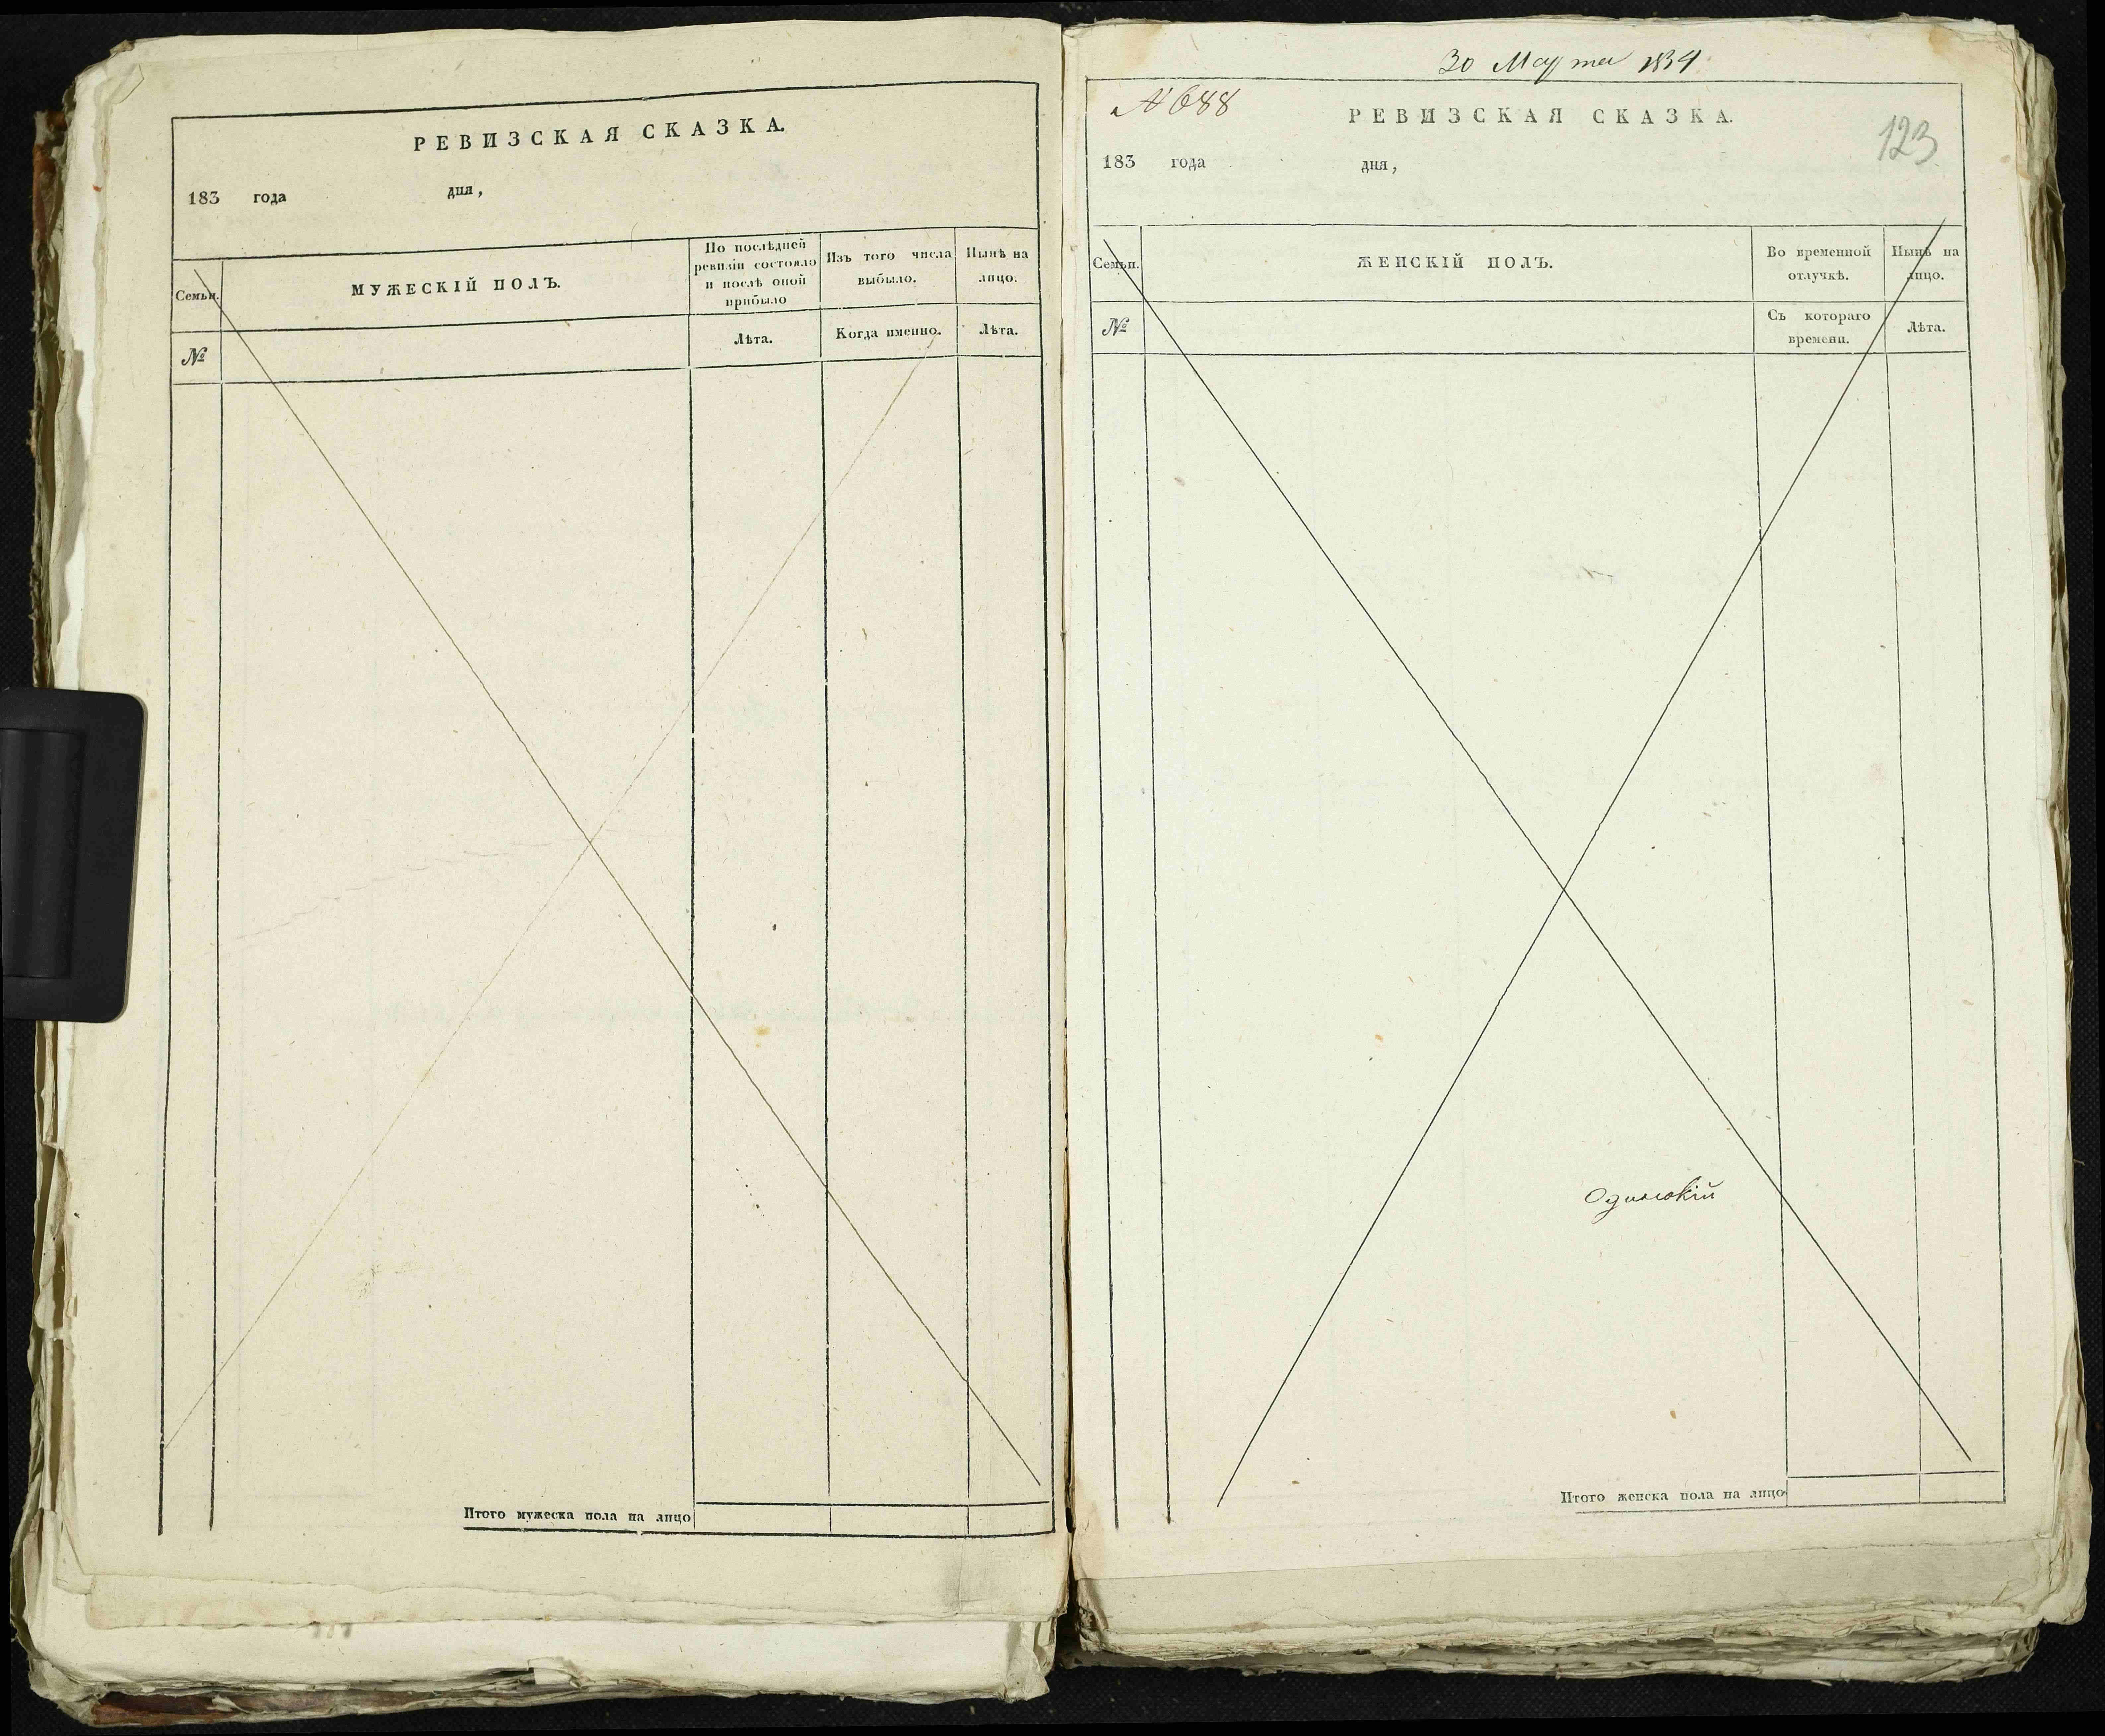 РЕВИЗСКАЯ СКАЗКА.
183 года дня,
Семьи.
МУЖЕСКІЙ ПОЛЪ.
По послѣдней
ревизіи состояло
и послѣ оной
прибыло
Изъ того числа
выбыло.
Нынѣ на
лицо.
№
Лѣта.
Когда именно.
Лѣта.
Итого мужеска пола на лицо
30 Марта 1834
№ 688
РЕВИЗСКАЯ СКАЗКА.
123
183 года дня,
Семьи.
ЖЕНСКІЙ ПОЛЪ.
Во временной
отлучкѣ.
Нынѣ на
лицо.
№
Съ котораго
времени.
Лѣта.
Одинокій
Итого женска пола на лицо